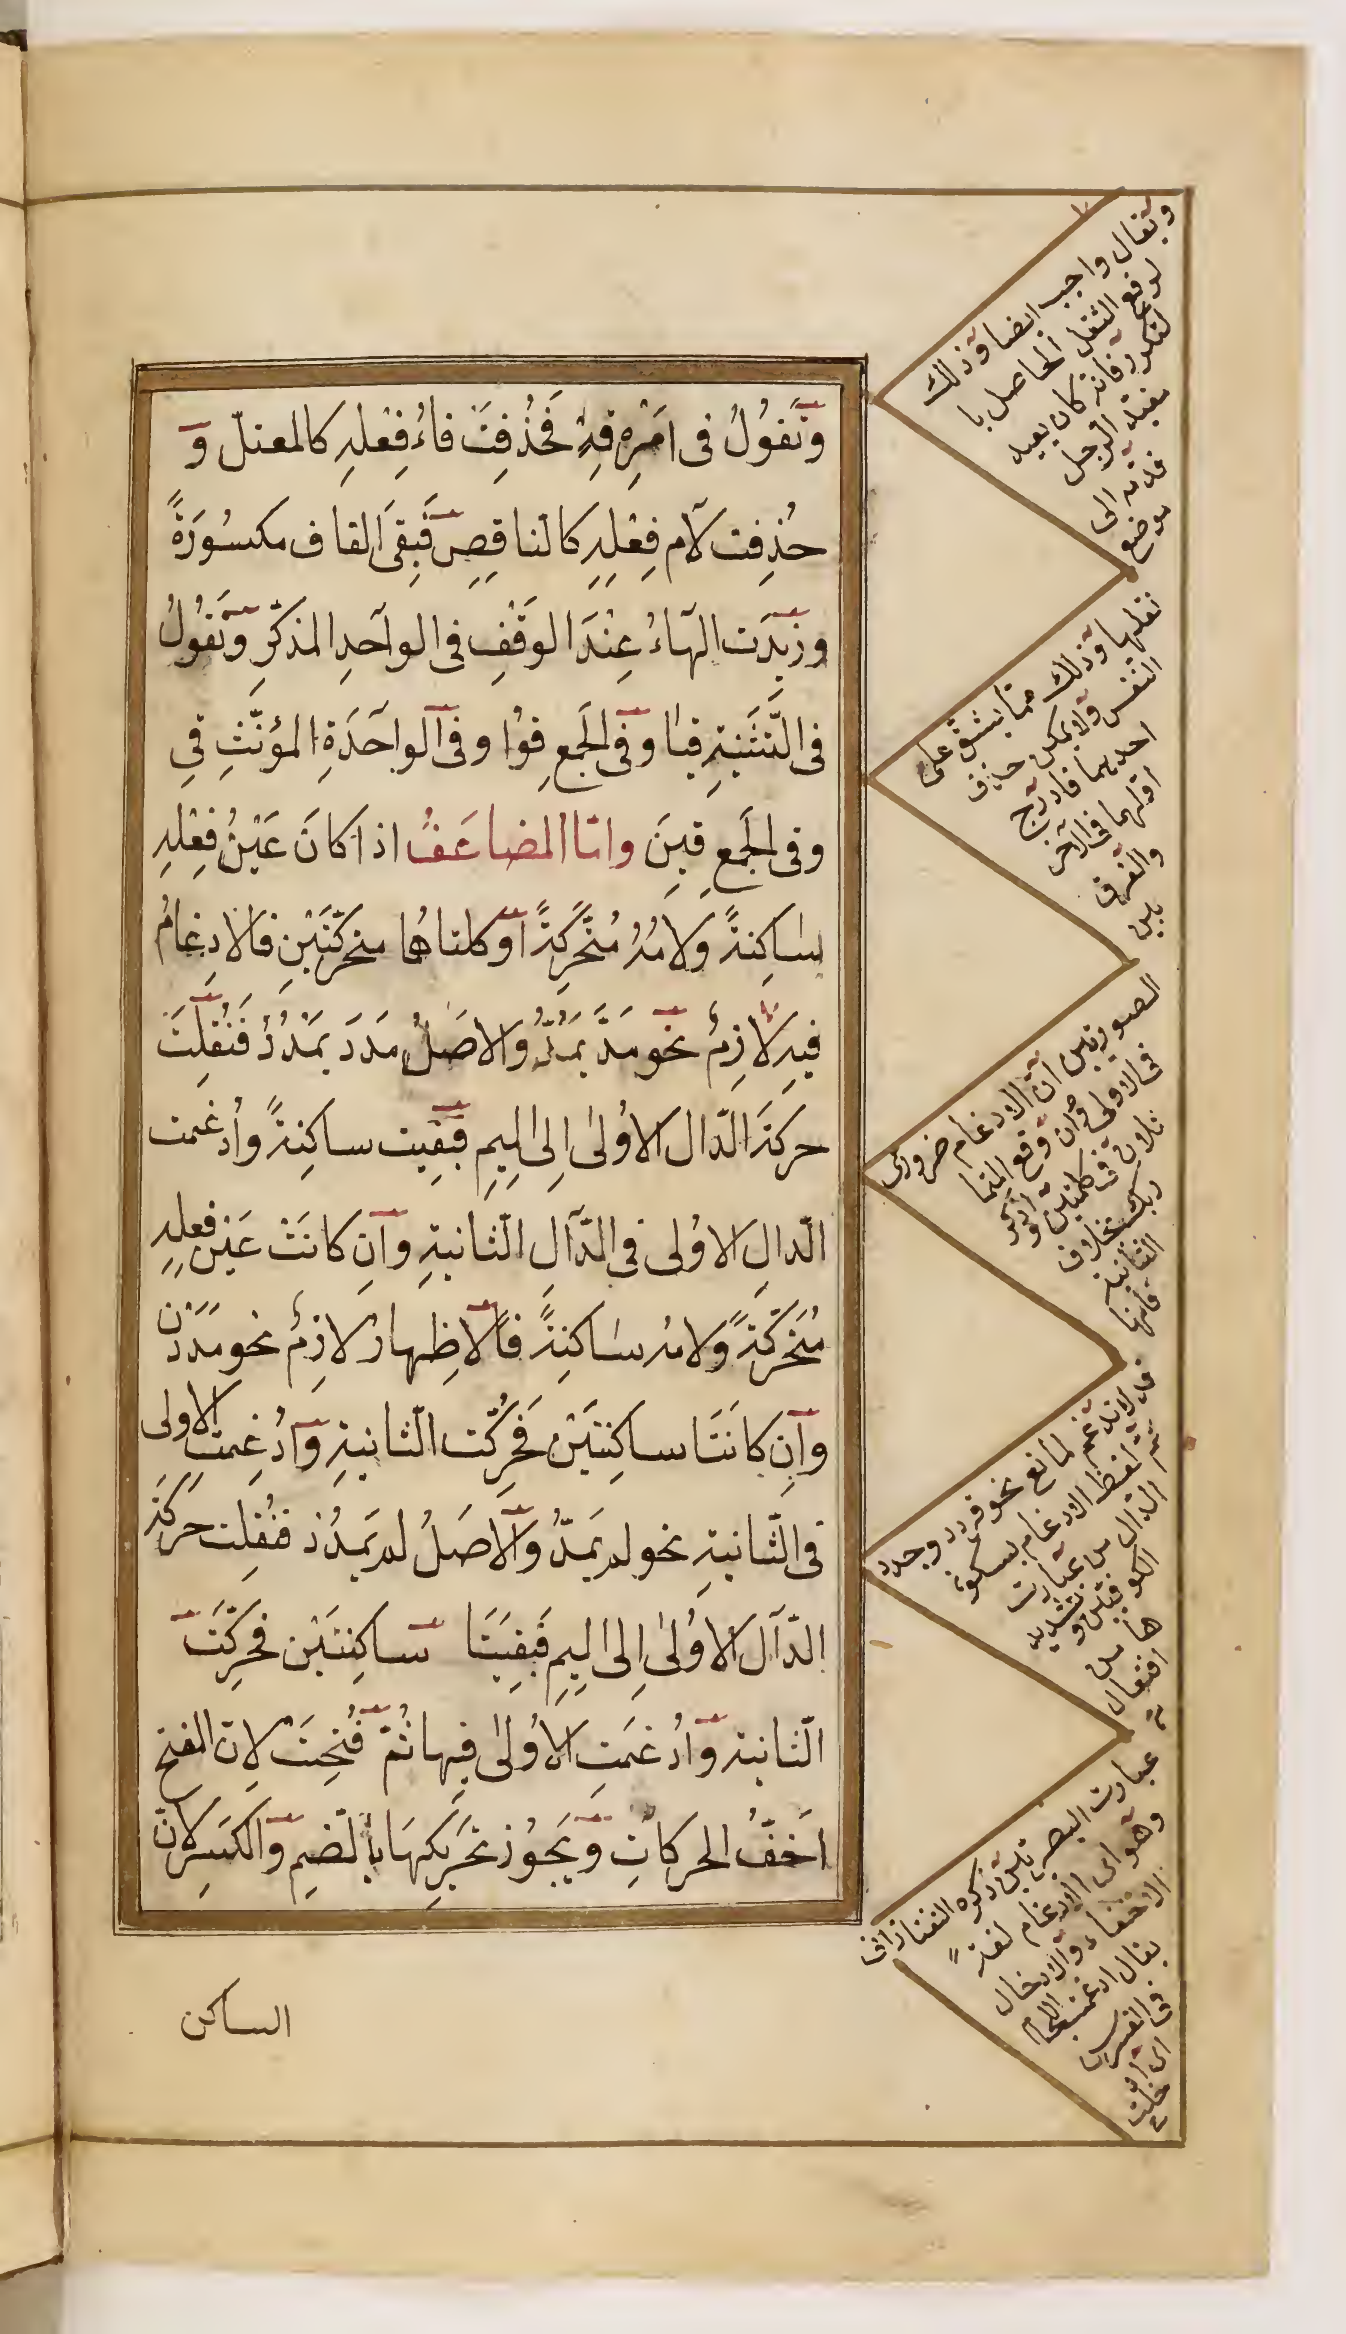 وَتَقُولُ فى اَمْرِهِ قِهْ فَحُذِفَتْ فاءُ فِعْلِهِ كالمعتلّ وَ
حُذِفت لآم فِعْلِهِ كالنّاقِصِ فَبَقىَ القاف مكسُورَةً
وزِيدَت الهَاءُ عِنْدَ الوَقْفِ فى الواحدِ المذكّرِ وَتَقُولُ
فى التَّثنِيَةِ قِيَا وَفى الجَمعِ قُوا وفى الواحدَةِ المؤنّثِ قِي
وفى الجَمعِ قِينَ وامّا المضاعَفُ اذا كانَ عَيْنُ فِعْلِهِ
ساكِنةً ولامُهُ مُتَحَرِّكَةً اَوْ كلتاهُما متحرّكَتَيْنِ فالادِغامُ
فيهِ لازِمٌ نحو مَدَّ يَمُدُّ وَالاصَلُ مَدَدَ يَمْدُدُ فَنُقِلَتْ
حركَة الدّال الاُولىٰ اِلىَ المِيمِ فبَقِيت ساكِنةً واُدغمت
الدّالِ الاوُلى فى الدّآلِ الثّانيةِ وآنِ كانَتْ عَيْن فعلِهِ
مُتَحَرِّكةً ولامُهُ ساكنِةً فَالاظِهارُ لازِمٌ نحو مَدَدْنَ
وآنِ كانَتَا ساكِنتَيْنِ فَحُرِّكَت الثّانيةِ وَاُدْغِمت الاولى
فى الثّانيةِ نحو لم يَمدُّ وَالاصَلُ لم يَمدُدْ فنُقِلت حَركَة
الدّآلِ الاوُلىٰ اِلىَ المِيمِ فَبَقِيَتَا ساكِنتَيْن فحُرِّكَتَ
الثانية وَاُدْغمَتِ الاُولىٰ فِيها ثُمّ فُتحِتَ لانّ الفتح
اَخفُّ الحركاتِ وَيَجُوز تحرِيكهَا بالضّمِ وَالكَسرِ لانّ
الساكن
ويقال واجب ايضا وذلك
لدفع الثقل الحاصل با
لتكرر فانه كان يعيد
بمنزلة الرجل
قدمه الى
موضع
نقلها وذلك مما يشقّ على
النفس ولا يمكن حذف
احديهما فادرج
اولهما فى الآخر
والفرق
بين
الصورتين انّ الادغام ضرورى
فى الاولى وان وقع المثما
ثلان فى كلمتين نحو اذكر
ربك بخلاف
الثانية
فانها
قد لا يدغم لمانع نحو قردد وجدد
ثم لفظ الادغام بسكون
الدال من عبارت
الكوفيّين وتشديد
ها من
افتعال
عبارت البصريّين ذكره التفتازانى
وهو اى الادغام لغةً
الاخفاء والادخال
يقال ادغمت اللجام
فى الفرس
اى اد
خلت